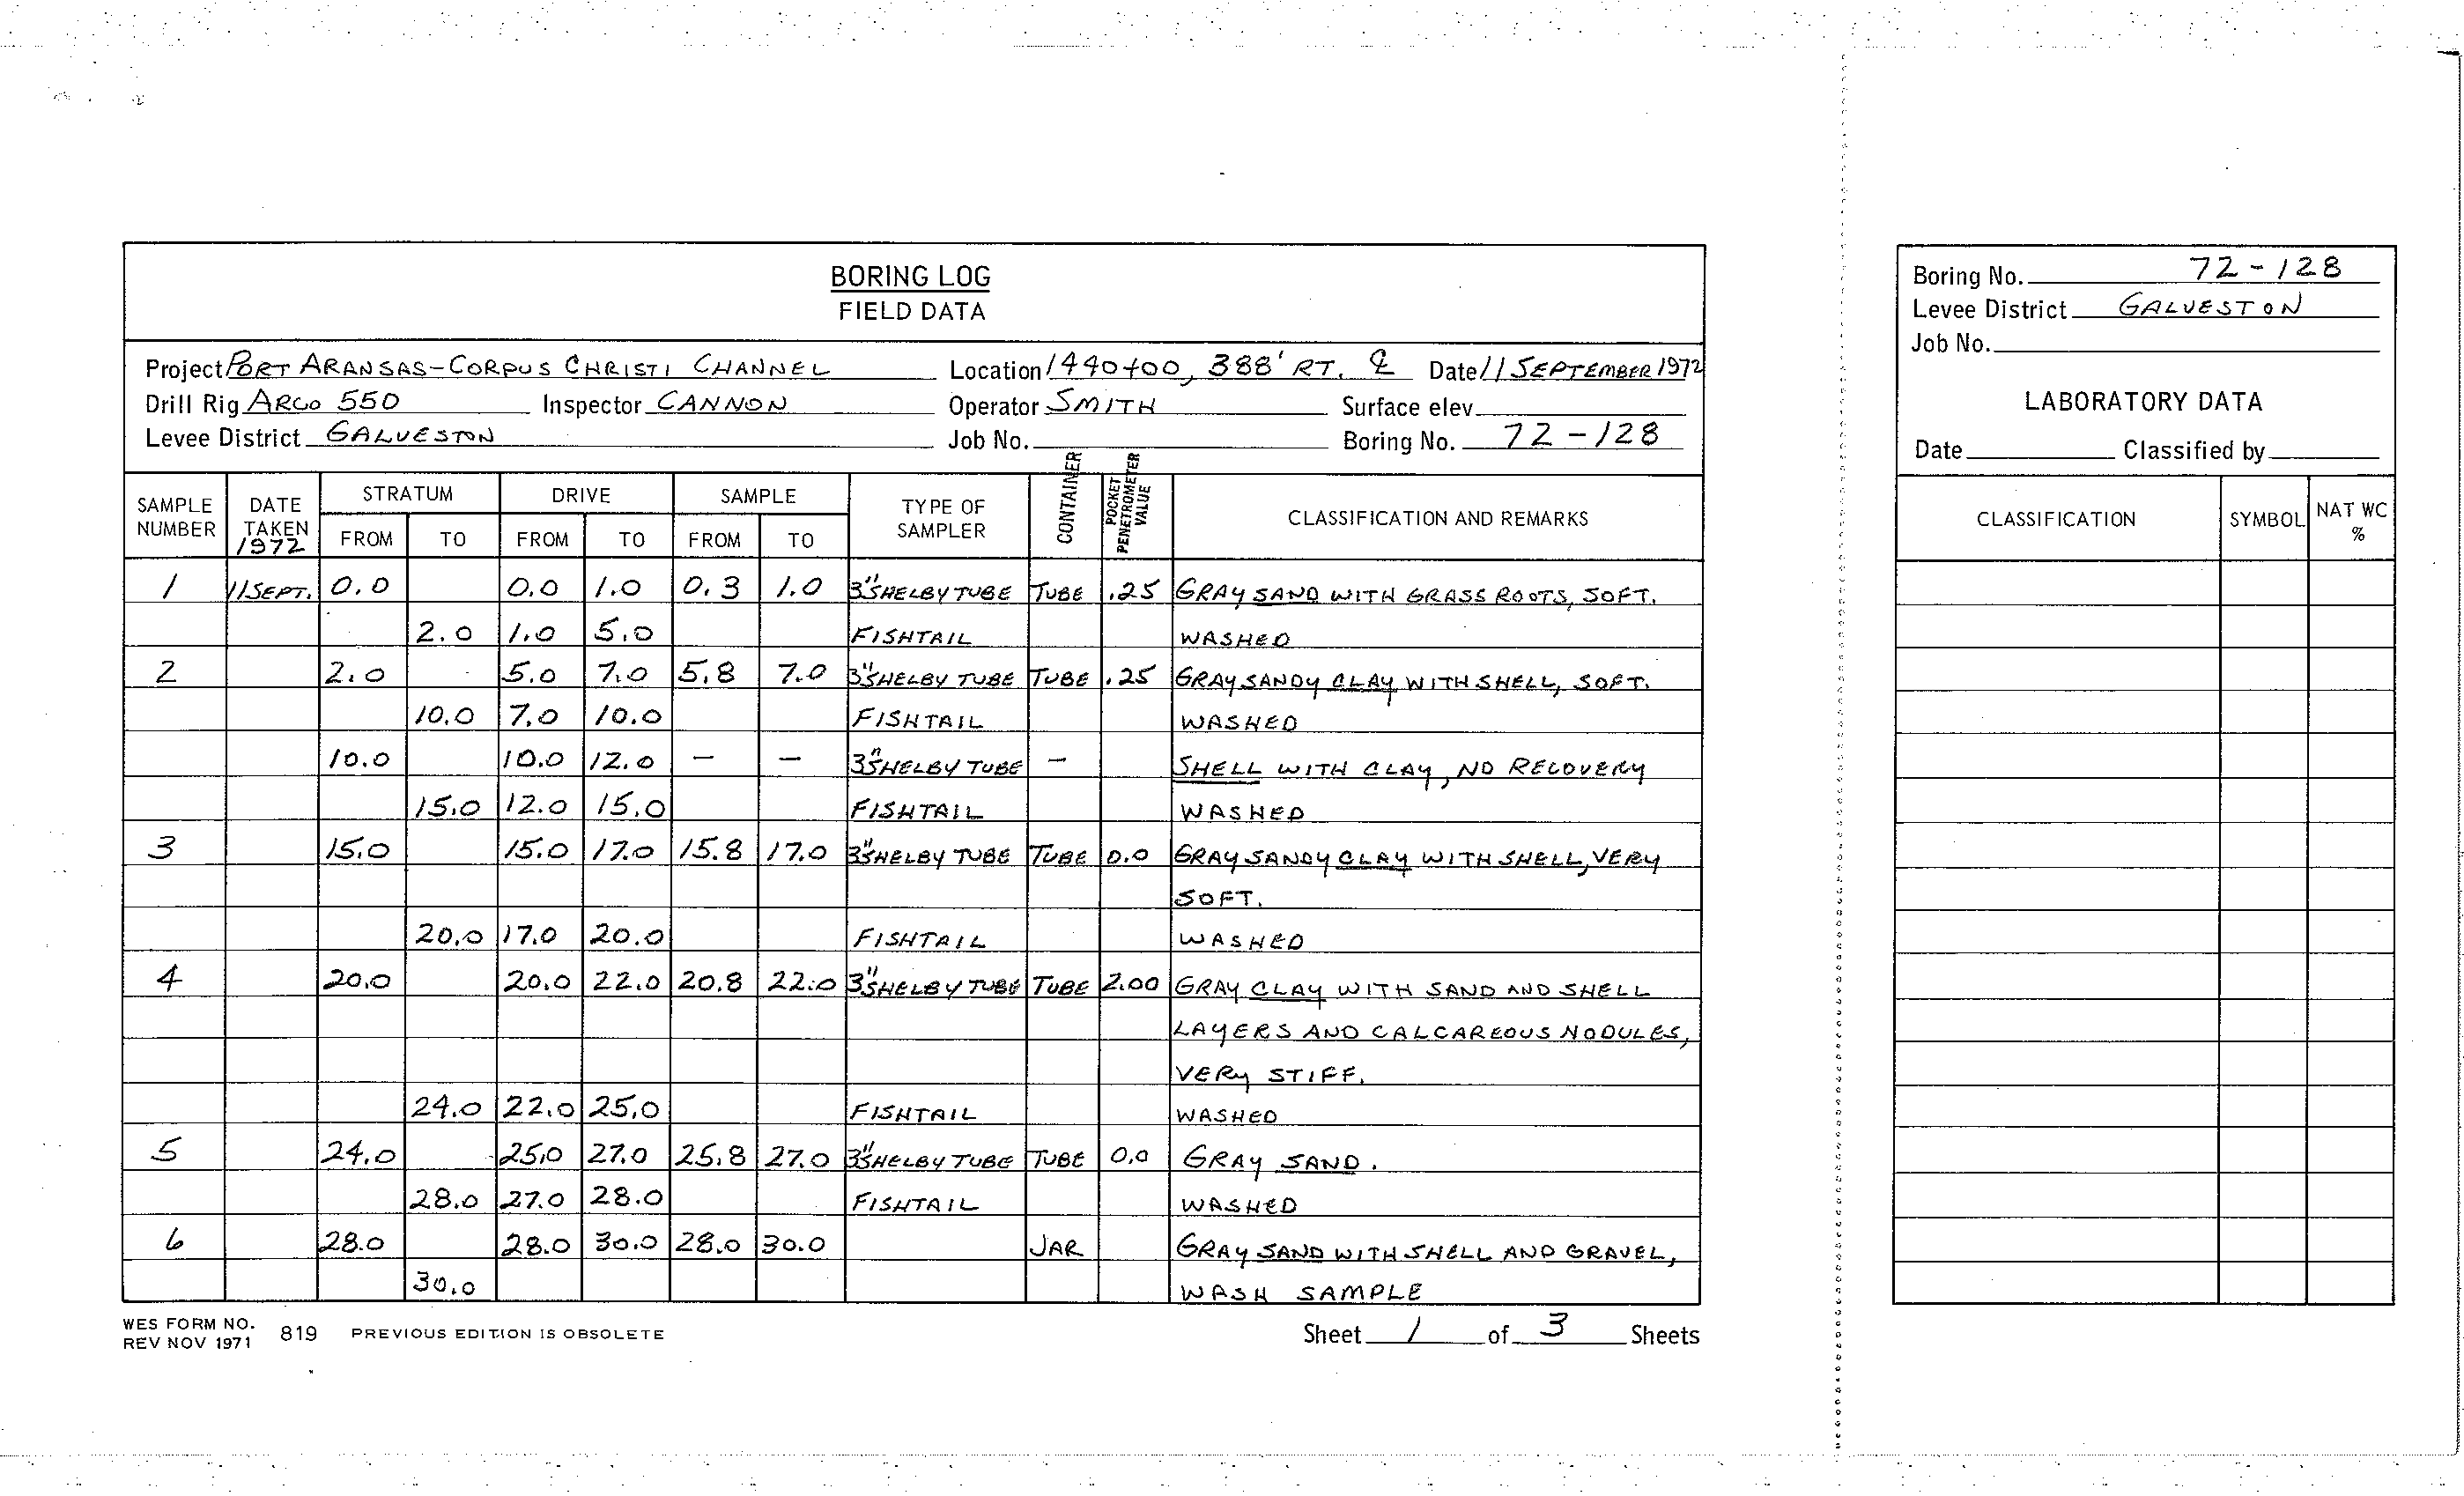 BORING LOG
FIELD DATA
Project PORT ARANSAS-CORPUS CHRISTI CHANNEL Location 1440+00, 388' RT. ℄ Date 11 SEPTEMBER 1972
Drill Rig ARCO 550 Inspector CANNON Operator SMITH Surface elev.
Levee District GALVESTON Job No. Boring No. 72-128
SAMPLE NUMBER DATE TAKEN 1972 STRATUM FROM TO DRIVE FROM TO SAMPLE FROM TO TYPE OF SAMPLER CONTAINER POCKET PENETROMETER VALUE CLASSIFICATION AND REMARKS
1 11 SEPT. 0.0 0.0 1.0 0.3 1.0 3" SHELBY TUBE TUBE .25 GRAY SAND WITH GRASS ROOTS, SOFT.
2.0 1.0 5.0 FISHTAIL WASHED
2 2.0 5.0 7.0 5.8 7.0 3" SHELBY TUBE TUBE .25 GRAY SANDY CLAY WITH SHELL, SOFT.
10.0 7.0 10.0 FISHTAIL WASHED
10.0 10.0 12.0 - - 3" SHELBY TUBE - SHELL WITH CLAY, NO RECOVERY
15.0 12.0 15.0 FISHTAIL WASHED
3 15.0 15.0 17.0 15.8 17.0 3" SHELBY TUBE TUBE 0.0 GRAY SANDY CLAY WITH SHELL, VERY
SOFT.
20.0 17.0 20.0 FISHTAIL WASHED
4 20.0 20.0 22.0 20.8 22.0 3" SHELBY TUBE TUBE 2.00 GRAY CLAY WITH SAND AND SHELL
LAYERS AND CALCAREOUS NODULES,
VERY STIFF.
24.0 22.0 25.0 FISHTAIL WASHED
5 24.0 25.0 27.0 25.8 27.0 3" SHELBY TUBE TUBE 0.0 GRAY SAND.
28.0 27.0 28.0 FISHTAIL WASHED
6 28.0 28.0 30.0 28.0 30.0 JAR GRAY SAND WITH SHELL AND GRAVEL,
30.0 WASH SAMPLE
WES FORM NO. 819 PREVIOUS EDITION IS OBSOLETE
REV NOV 1971
Sheet 1 of 3 Sheets
Boring No. 72-128
Levee District GALVESTON
Job No.
LABORATORY DATA
Date Classified by
CLASSIFICATION SYMBOL NAT WC %